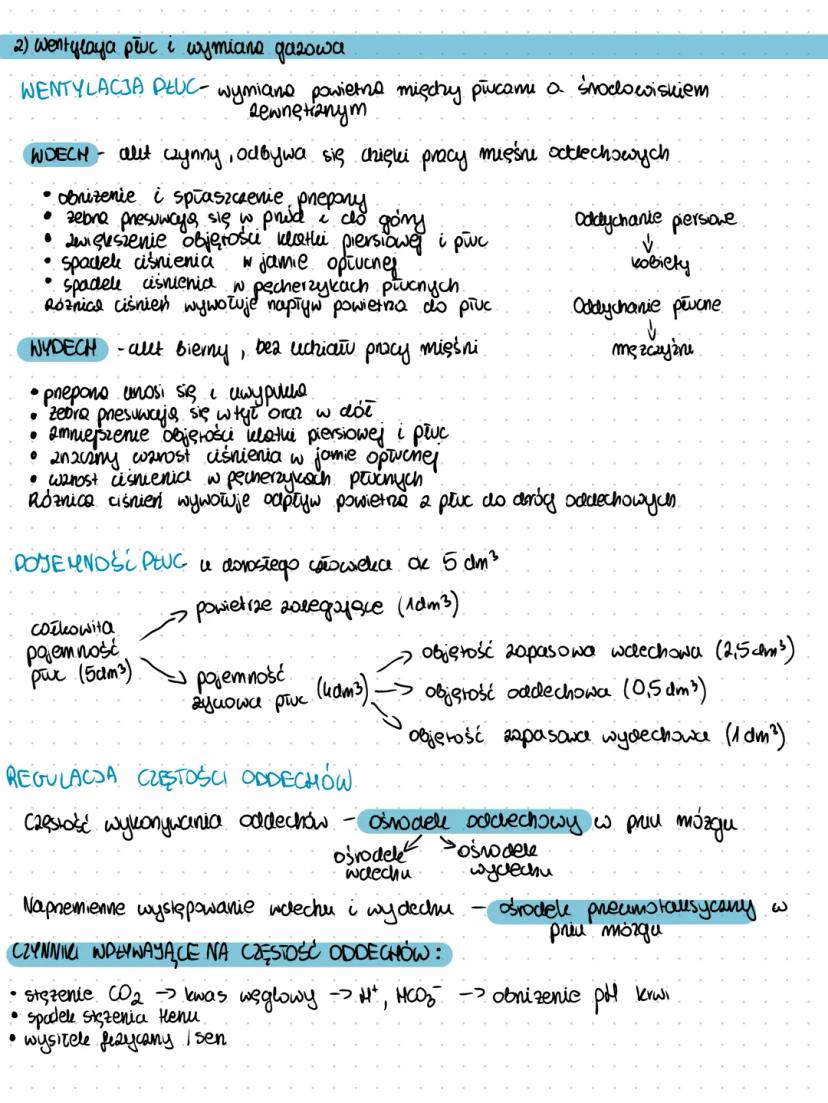 2) Wentylacja płuc i wymiana gazowa
WENTYLACJA PŁUC - wymiana powietrza między płucami a środowiskiem
zewnętrznym
WDECH - akt czynny, odbywa się dzięki pracy mięśni oddechowych
• obniżenie i spłaszczenie przepony
• żebra przesuwają się w przód i do góry
• zwiększenie objętości klatki piersiowej i płuc
• spadek ciśnienia w jamie opłucnej
• spadek ciśnienia w pęcherzykach płucnych
Różnica ciśnień wywołuje napływ powietrza do płuc
Oddychanie piersiowe
↓
kobiety
Oddychanie płucne
↓
mężczyźni
WYDECH - akt bierny, bez udziału pracy mięśni
• przepona unosi się i uwypukla
• żebra przesuwają się w tył oraz w dół
• zmniejszenie objętości klatki piersiowej i płuc
• znaczny wzrost ciśnienia w jamie opłucnej
• wzrost ciśnienia w pęcherzykach płucnych
Różnica ciśnień wywołuje odpływ powietrza z płuc do dróg oddechowych
POJEMNOŚĆ PŁUC u dorosłego człowieka ok 5 dm³
całkowita
pojemność
płuc (5dm³)
→ powietrze zalegające (1dm³)
→ pojemność
życiowa płuc (4dm³)
→ objętość zapasowa wdechowa (2,5 dm³)
→ objętość oddechowa (0,5 dm³)
objętość zapasowa wydechowa (1 dm³)
REGULACJA CZĘSTOŚCI ODDECHÓW
Częstość wykonywania oddechów - ośrodek oddechowy w pniu mózgu
ośrodek
wdechu
ośrodek
wydechu
Naprzemienne występowanie wdechu i wydechu - ośrodek pneumotaksyczny w
pniu mózgu
CZYNNIKI WPŁYWAJĄCE NA CZĘSTOŚĆ ODDECHÓW:
• stężenie CO₂ → kwas węglowy → H⁺, HCO₃⁻ → obniżenie pH krwi
• spadek stężenia tlenu
• wysiłek fizyczny / sen